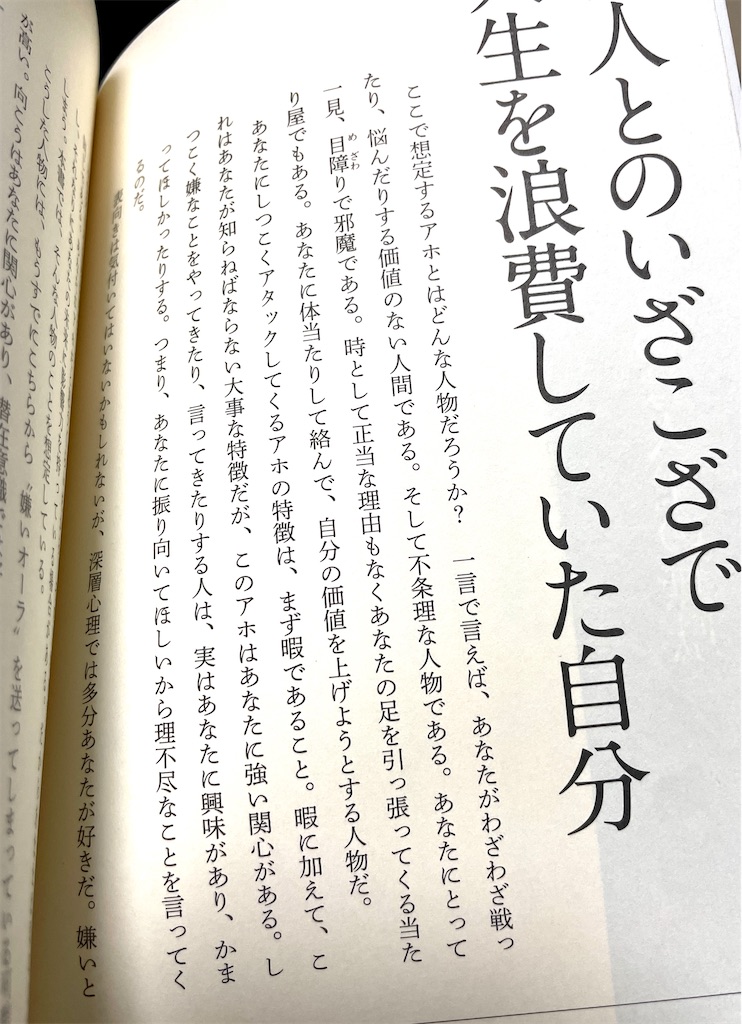 人とのいざこざで
生を浪費していた自分
ここで想定するアホとはどんな人物だろうか？　一言で言えば、あなたがわざわざ戦っ
たり、悩んだりする価値のない人間である。そして不条理な人物である。あなたにとって
一見、目障りで邪魔である。時として正当な理由もなくあなたの足を引っ張ってくる当た
り屋でもある。あなたに体当たりして絡んで、自分の価値を上げようとする人物だ。
あなたにしつこくアタックしてくるアホの特徴は、まず暇であること。暇に加えて、こ
れはあなたが知らねばならない大事な特徴だが、このアホはあなたに強い関心がある。し
つこく嫌なことをやってきたり、言ってきたりする人は、実はあなたに興味があり、かま
ってほしかったりする。つまり、あなたに振り向いてほしいから理不尽なことを言ってく
るのだ。
表向きは気付いてはいないかもしれないが、深層心理では多分あなたが好きだ。嫌いと
しまう。本書では、そんな人物のことを想定している。
どうした人物には、もうすでにこちらから“嫌いオーラ”を送ってしまっている
が高い。向こうはあなたに関心があり、潜在意識で